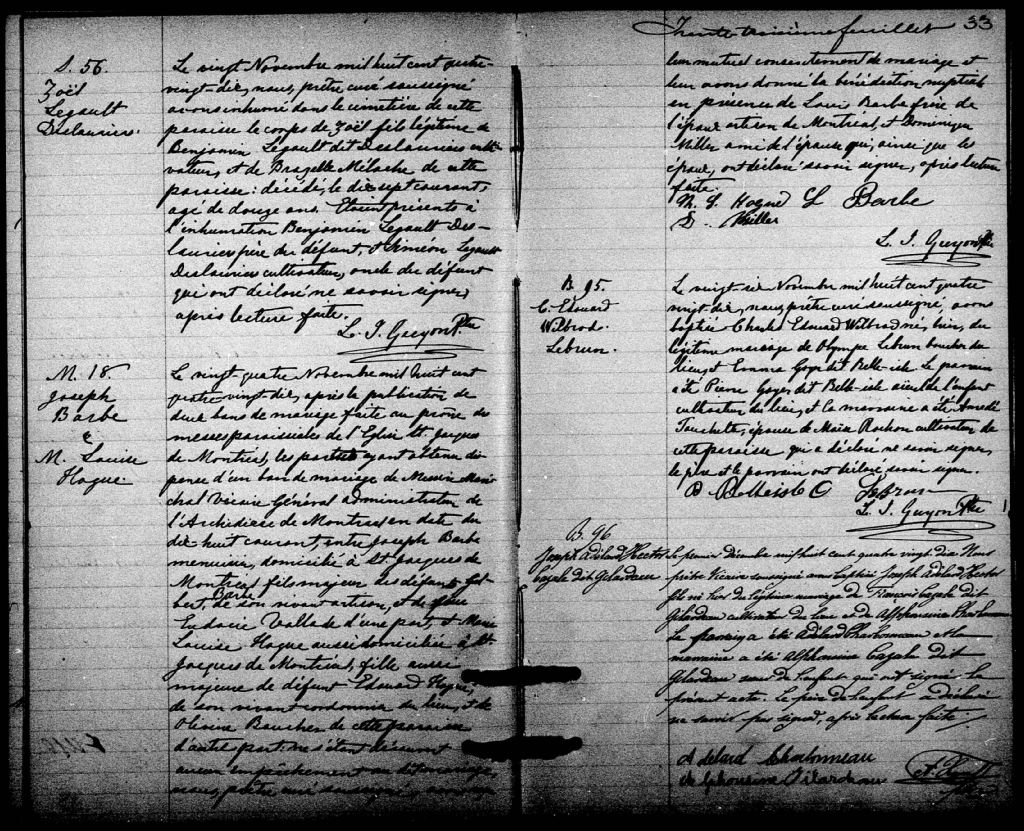 S. 56.
Zoël
Legault
Deslauriers.
Le vingt Novembre mil huit cent quatre-
vingt dix, nous, prêtre curé soussigné
avons inhumé dans le cimetière de cette
paroisse le corps de Zoël fils légitime de
Benjamin Legault dit Deslauriers culti-
vateur, et de Meloche de cette
paroisse: décédé, le dix sept courant,
agé de douze ans. Etaient présents à
l'inhumation Benjamin Legault Des-
lauriers père du défunt, et Siméon Legault
Deslauriers cultivateur, oncle du défunt
qui ont déclaré ne savoir signer,
après lecture faite.
L. J. Guyon Ptre
M. 18.
Joseph
Barbe
&
M. Louise
Hogue.
Le vingt-quatre Novembre mil huit cent
quatre-vingt dix, après la publication de
deux bans de mariage faite au prône des
messes paroissiales de l'Eglise St. Jacques
de Montréal, les parties ayant obtenu dis-
pense d'un ban de mariage de Messire Maré-
chal Vicaire Général administrateur de
l'Archidiocèse de Montréal en date du
dix huit courant, entre Joseph Barbe
menuisier, domicilié à St. Jacques de
Montréal fils majeur des défunts
Barbe
de son vivant artisan, et de
Eudocie Vallade d'une part et Marie
Louise Hogue aussi domiciliée à St.
Jacques de Montréal, fille aussi
majeure de défunt Edouard Hogue,
de son vivant cordonnier du lieu, et de
Olivine Boucher de cette paroisse
d'autre part: ne s'étant découvert
aucun empêchement au dit mariage,
nous, prêtre curé soussigné, avons reçu
Trente-troisième feuillet 33
leur mutuel consentement de mariage et
leur avons donné la bénédiction nuptiale
en présence de Louis Barbe frère de
l'époux artisan de Montréal, et Dominique
Miller ami de l'épouse qui, ainsi que les
époux, ont déclaré savoir signer, après lecture
faite.
M. L. Hogue L Barbe
D. Miller
L. J. Guyon Ptre
B. 95.
C. Edouard
Wilbrod.
Lebrun.
Le vingt-six Novembre mil huit cent quatre
vingt-dix, nous, prêtre curé soussigné, avons
baptisé Charles Edouard Wilbrod né, hier, du
légitime mariage de Olympe Lebrun boucher du
lieu, et Emma Goyer dit Belle-isle. Le parrain
a été Pierre Goyer dit Belle-isle aïeul de l'enfant
cultivateur du lieu, et la marraine a été
Touchette, épouse de Rochon cultivateur de
cette paroisse qui a déclaré ne savoir signer,
le père et le parrain ont déclaré savoir signer.
P Belleisle O Lebrun
L. J. Guyon Ptre
B. 96
Joseph Adélard Hector
Cazale dit Gélardeau
Le premier décembre mil huit cent quatre vingt dix Nous
prêtre Vicaire soussigné avons baptisé Joseph Adélard Hector
fils né hier du légitime mariage de François Cazale dit
Gélardeau cultivateur du lieu et de Alphonsine Charbonneau
Le parrain a été Adélard Charbonneau et la
marraine a été Alphonsine Cazale dit
Gélardeau soeur de l'enfant qui ont signé le
présent acte. Le père de l'enfant a déclaré
ne savoir pas signer, après lecture faite
Adelard Charbonneau
Alphonsine Gilardeau